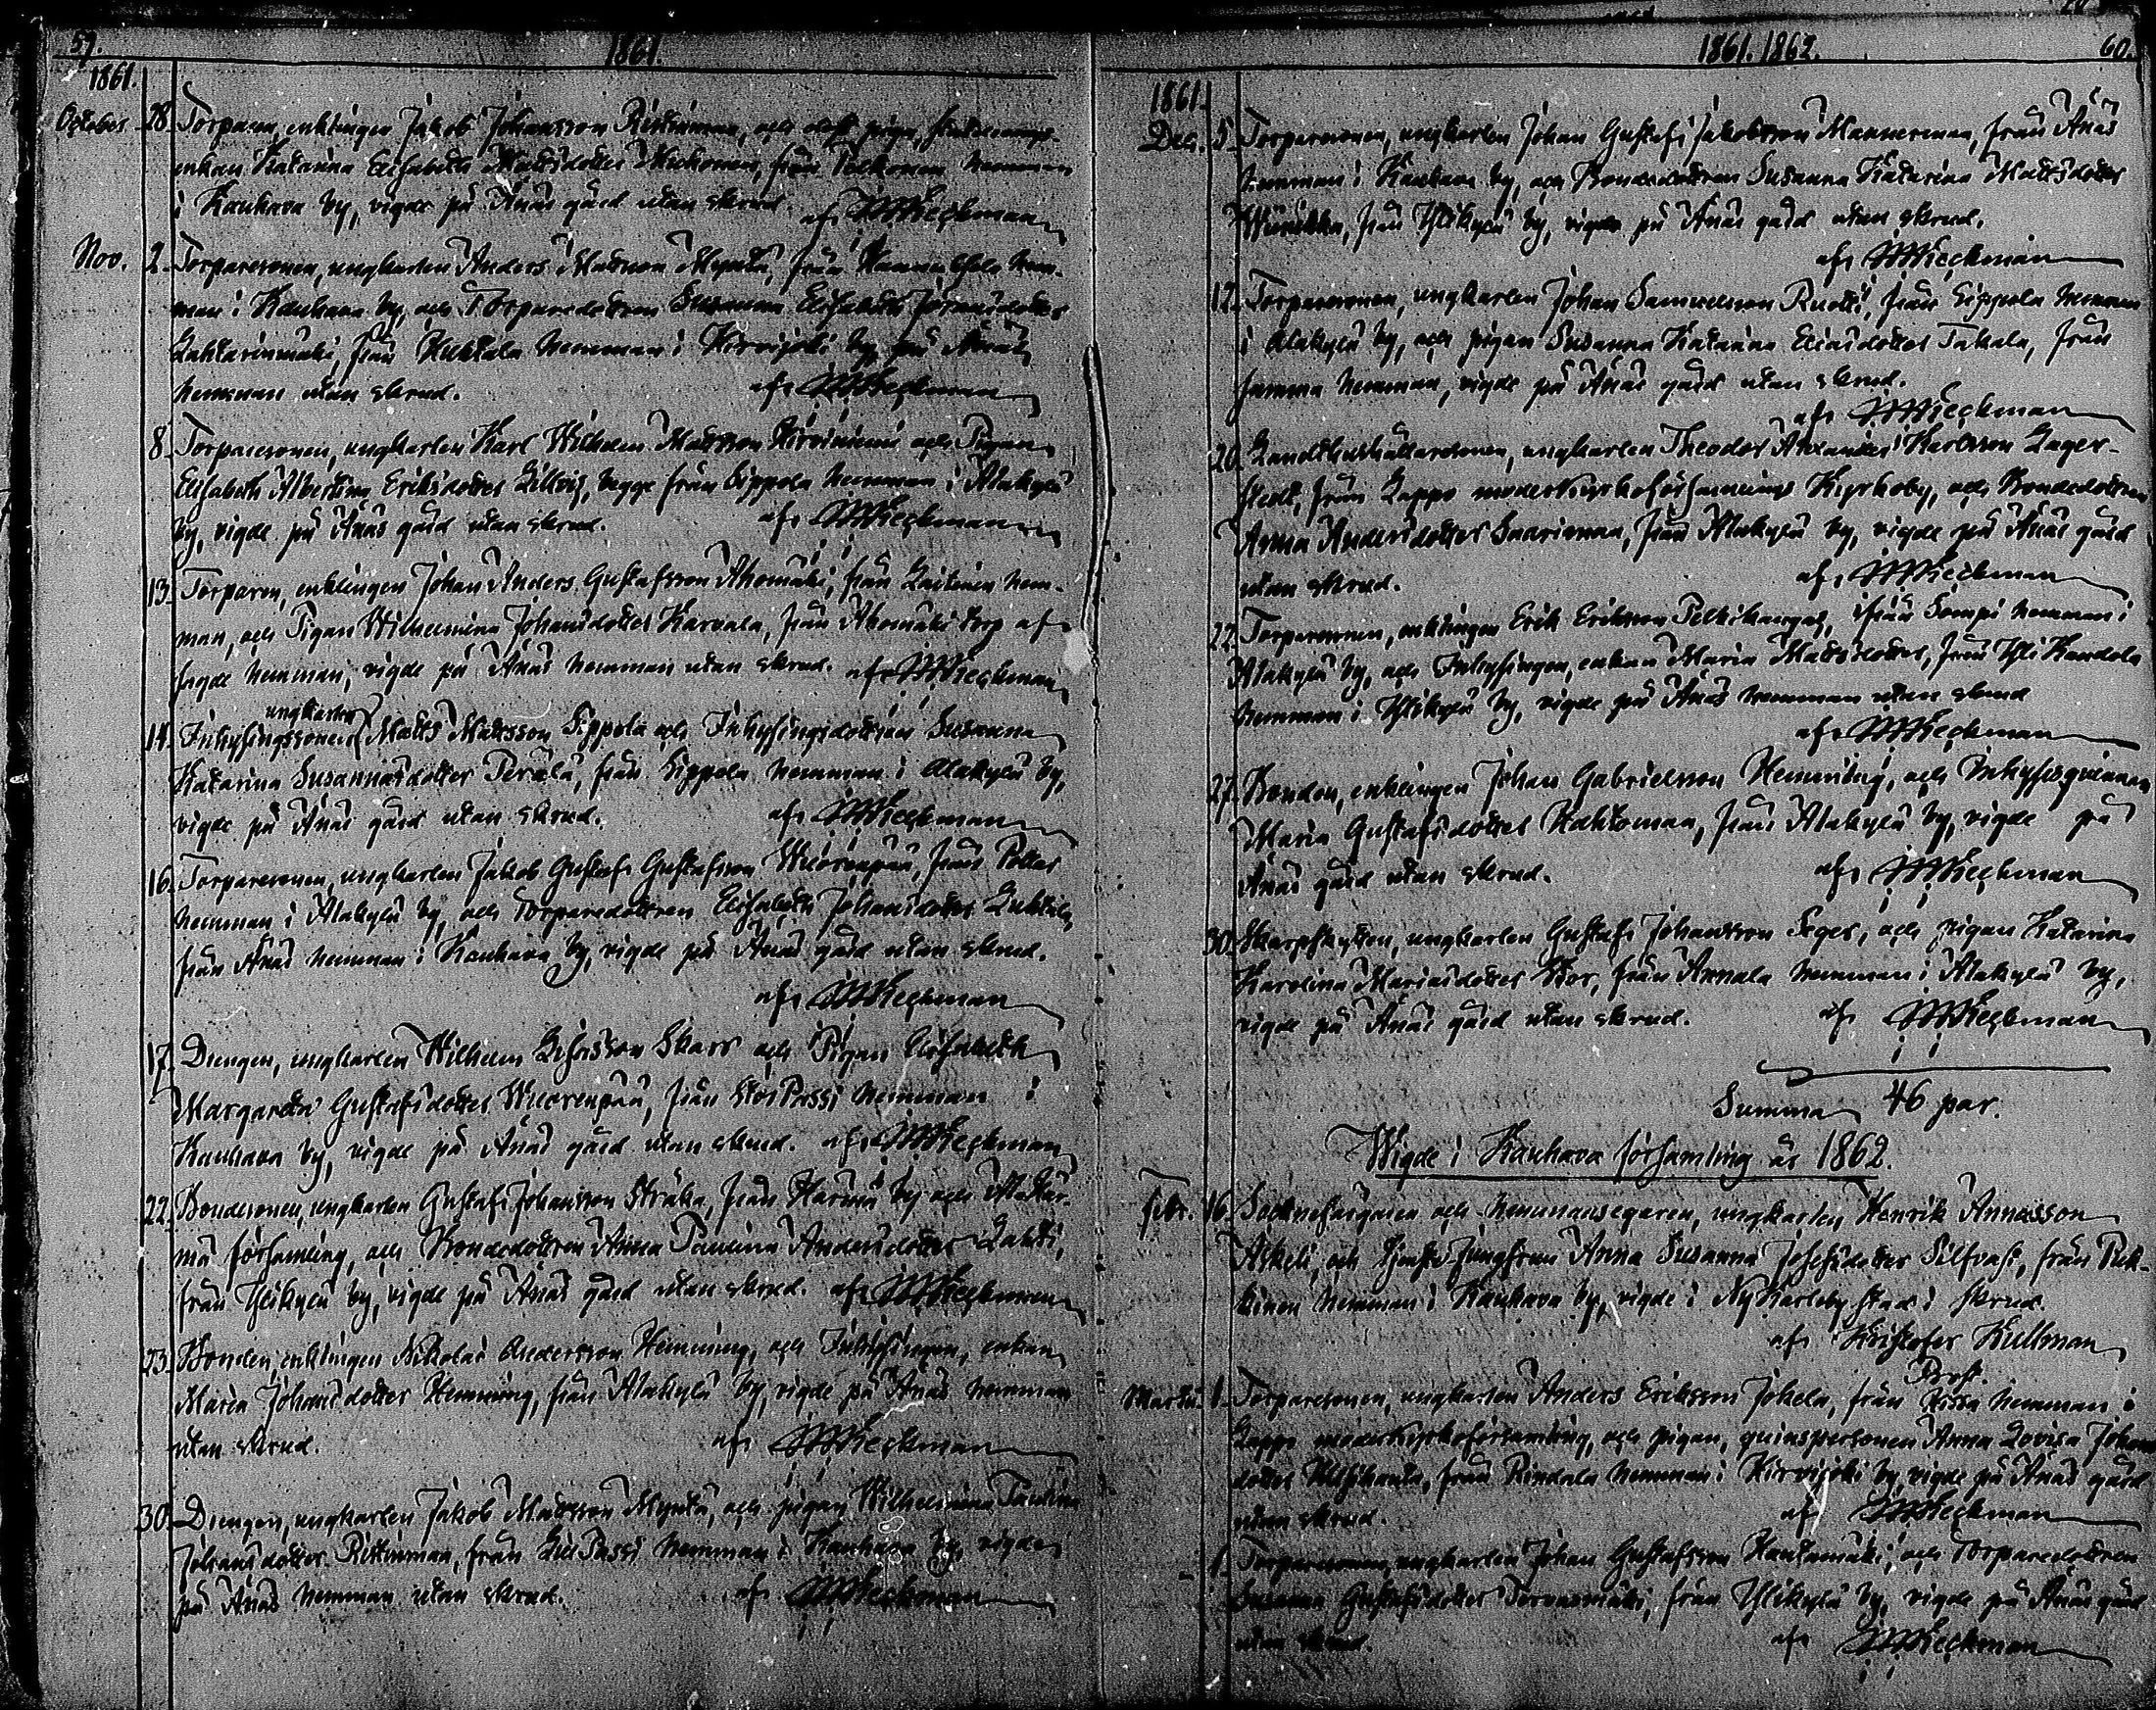 59.
1861.
1861.
October 28. Torparen, enklingen Jakob Johansson Rintinman, och pigan,
enkan Katarina Elisabeth Mattsdotter från Pelkonen hemman
i Kauhava by, vigde på Ånäs gård utan skrud. af IWieckman
Nov. 2. Torparesonen, ungkarlen Anders Matsson Mynttä, från hem-
man i Kauhava by, och Torparedottren Susanna Elisabeth
Lahtarinmäki, från Huhtala hemman i Kirvisjoki by, på Ånäs
hemman utan skrud. af IWieckman
8. Torparesonen, ungkarlen Karl Wilhelm Mattsson Hirviniemi och Pigan
Elisabeth Albertina Eriksdotter Lillvis, begge från Sippola hemman i Alakylä
by, vigde på Ånäs gård utan skrud. af IWieckman
13. Torparen, enklingen Johan Anders Gustafsson Ahomäki, från Laitinen hem-
man, och Pigan Wilhelmina Johansdotter Karvala, från Ahomäki torp af
sagde hemman, vigde på Ånäs hemman utan skrud. af IWieckman
ungkarlen
14. Inhysingssonen Matts Mattsson Sippola och Inhysingsdottren Susanna
Katarina Susannasdotter Perälä, från Sippola hemman i Alakylä by,
vigde på Ånäs gård utan skrud. af IWieckman
16. Torparesonen, ungkarlen Jakob Gustaf Gustafsson Wuorenpää, från Pollar
hemman i Alakylä by, och Torparedottren Elisabeth Johansdotter Luhtala
från Ånäs hemman i Kauhava by, vigde på Ånäs gård utan skrud.
af IWieckman
17. Drengen, ungkarlen Wilhelm Skars och Pigan Elisabeth
Margareta Gustafsdotter Wuorenpää, från Stor Passi hemman i
Kauhava by, vigde på Ånäs gård utan skrud. af IWieckman
22. Bondesonen, ungkarlen Gustaf Johansson Sträka, från Härmä by och Alahär-
mä församling, och Bondedottren Anna Paulina Andersdotter Lahti,
från Ylikylä by, vigde på Ånäs gård utan skrud. af IWieckman
23. Bonden, enklingen Nikolai Andersson Hemming, och Inhysingen, enkan
Maria Johansdotter Hemming, från Alakylä by, vigde på Ånäs hemman
utan skrud. af IWieckman
30. Drengen, ungkarlen Jakob Mattsson Mynttä, och pigan Wilhelmina Paulina
Johansdotter Rittinman, från Lill Passi hemman i Kauhava by, vigde
på Ånäs hemman utan skrud. af IWieckman
1861. 1862.
60.
1861.
Dec. 5. Torparesonen, ungkarlen Johan Gustaf Jakobsson Mannerman, från Ånäs
hemman i Kauhava by, och Bondedottren Susanna Katarina Mattsdotter
från Ylikylä by, vigde på Ånäs gård utan skrud.
af IWieckman
12. Torparesonen, ungkarlen Johan Samuelsson Ruotti, från Sippola hemman
i Alakylä by, och pigan Susanna Katarina Eliasdotter Takala, från
samma hemman, vigde på Ånäs gård utan skrud.
af IWieckman
20. Landthushållaresonen, ungkarlen Theodor Alexander Karlsson Lager-
stedt, från Lappo moderkyrkoförsamlings Kyrkoby, och Bondedottren
Anna Andersdotter Saariman, från Alakylä by, vigde på Ånäs gård
utan skrud. af IWieckman
22. Torparesonen, enklingen Erik Eriksson Pelkikangas, ifrån Sompi hemman i
Alakylä by, och Inhysingen, enkan Maria Mattsdotter, från Yli Kandola
hemman i Ylikylä by, vigde på Ånäs hemman utan skrud
af IWieckman
27. Bonden, enklingen Johan Gabrielsson Hemming, och Inhysesqvinnan
Maria Gustafsdotter Kahtoman, från Alakylä by, vigde på
Ånäs gård utan skrud. af IWieckman
30. Skarpskytten, ungkarlen Gustaf Johansson Seger, och pigan Katarina
Karolina Mariasdotter Stor, från Annala hemman i Alakylä by,
vigde på Ånäs gård utan skrud. af IWieckman
Summa 46 par.
Wigde i Kauhava församling år 1862.
Febr. 16. Socknefärgaren och Hemmansegaren, ungkarlen Henrik Annasson
Askeli, och Jungfrun Anna Susanna Josefsdotter Silfvast, från Puk-
kinen hemman i Kauhava by, vigde i Ny Karleby stad i skrud.
af Kristofer Kullman
Prost.
Martii 1. Torparesonen, ungkarlen Anders Eriksson Jokela, från Rissa hemman i
Lappo moderkyrkoförsamling, och pigan, qvinspersonen Anna Lovisa Johans
dotter från Rindala hemman i Kirvisjoki by, vigde på Ånäs gård
utan skrud. af IWieckman
" 1. Torparesonen, ungkarlen Johan Gustafsson Hautamäki, och Torparedottren
Susanna Gustafsdotter Tervasmäki, från Ylikylä by, vigde på Ånäs gård
utan skrud. af IWieckman